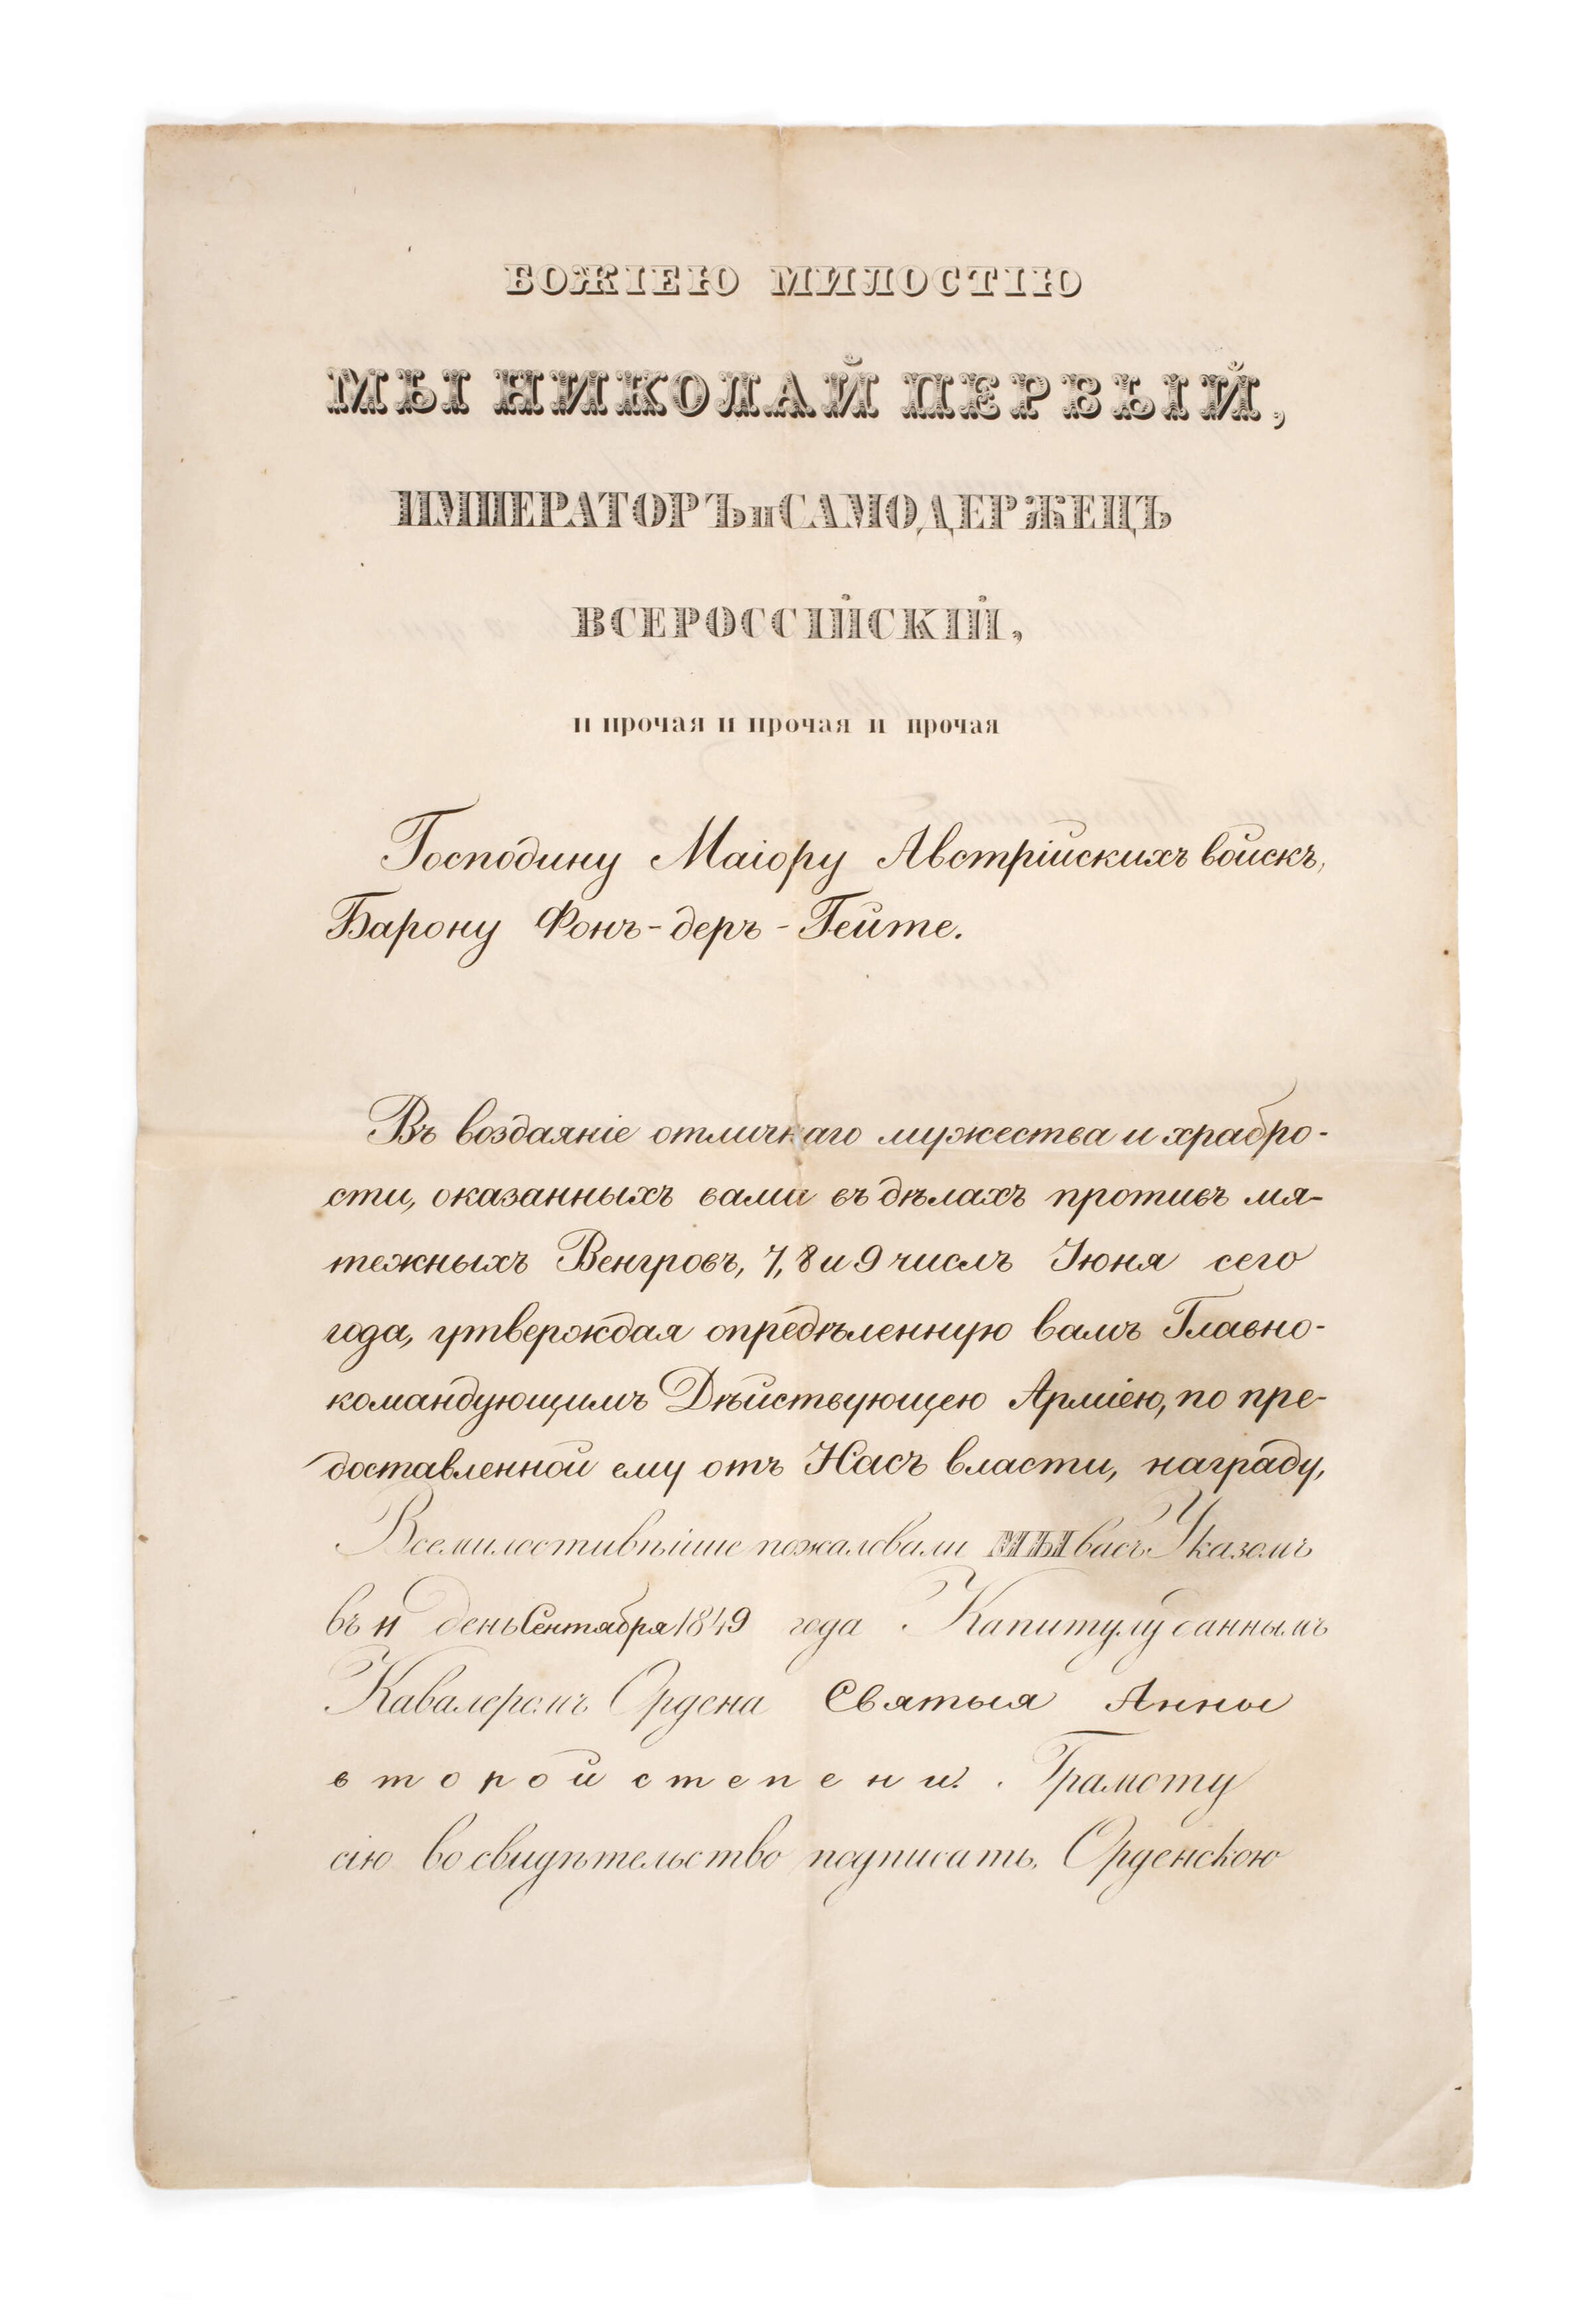 БОЖІЕЮ МИЛОСТІЮ
МЫ НИКОЛАЙ ПЕРВЫЙ,
ИМПЕРАТОРЪ и САМОДЕРЖЕЦЪ
ВСЕРОССІЙСКІЙ,
и прочая и прочая и прочая
Господину Маіору Австрійскихъ войскъ,
Барону Фонъ-деръ-Гейте.
Въ воздаяніе отличнаго мужества и храбро-
сти, оказанныхъ вами въ дѣлахъ противъ мя-
тежныхъ Венгровъ, 7, 8 и 9 числъ Іюня сего
года, утверждая опредѣленную вамъ Главно-
командующимъ Дѣйствующею Арміею, по пре-
доставленной ему отъ Насъ власти, награду,
Всемилостивѣйше пожаловали МЫ васъ Указомъ
въ 11 день Сентября 1849 года Капитулу даннымъ
Кавалеромъ Ордена Святыя Анны
второй степени. Грамоту
сію во свидѣтельство подписать, Орденскою